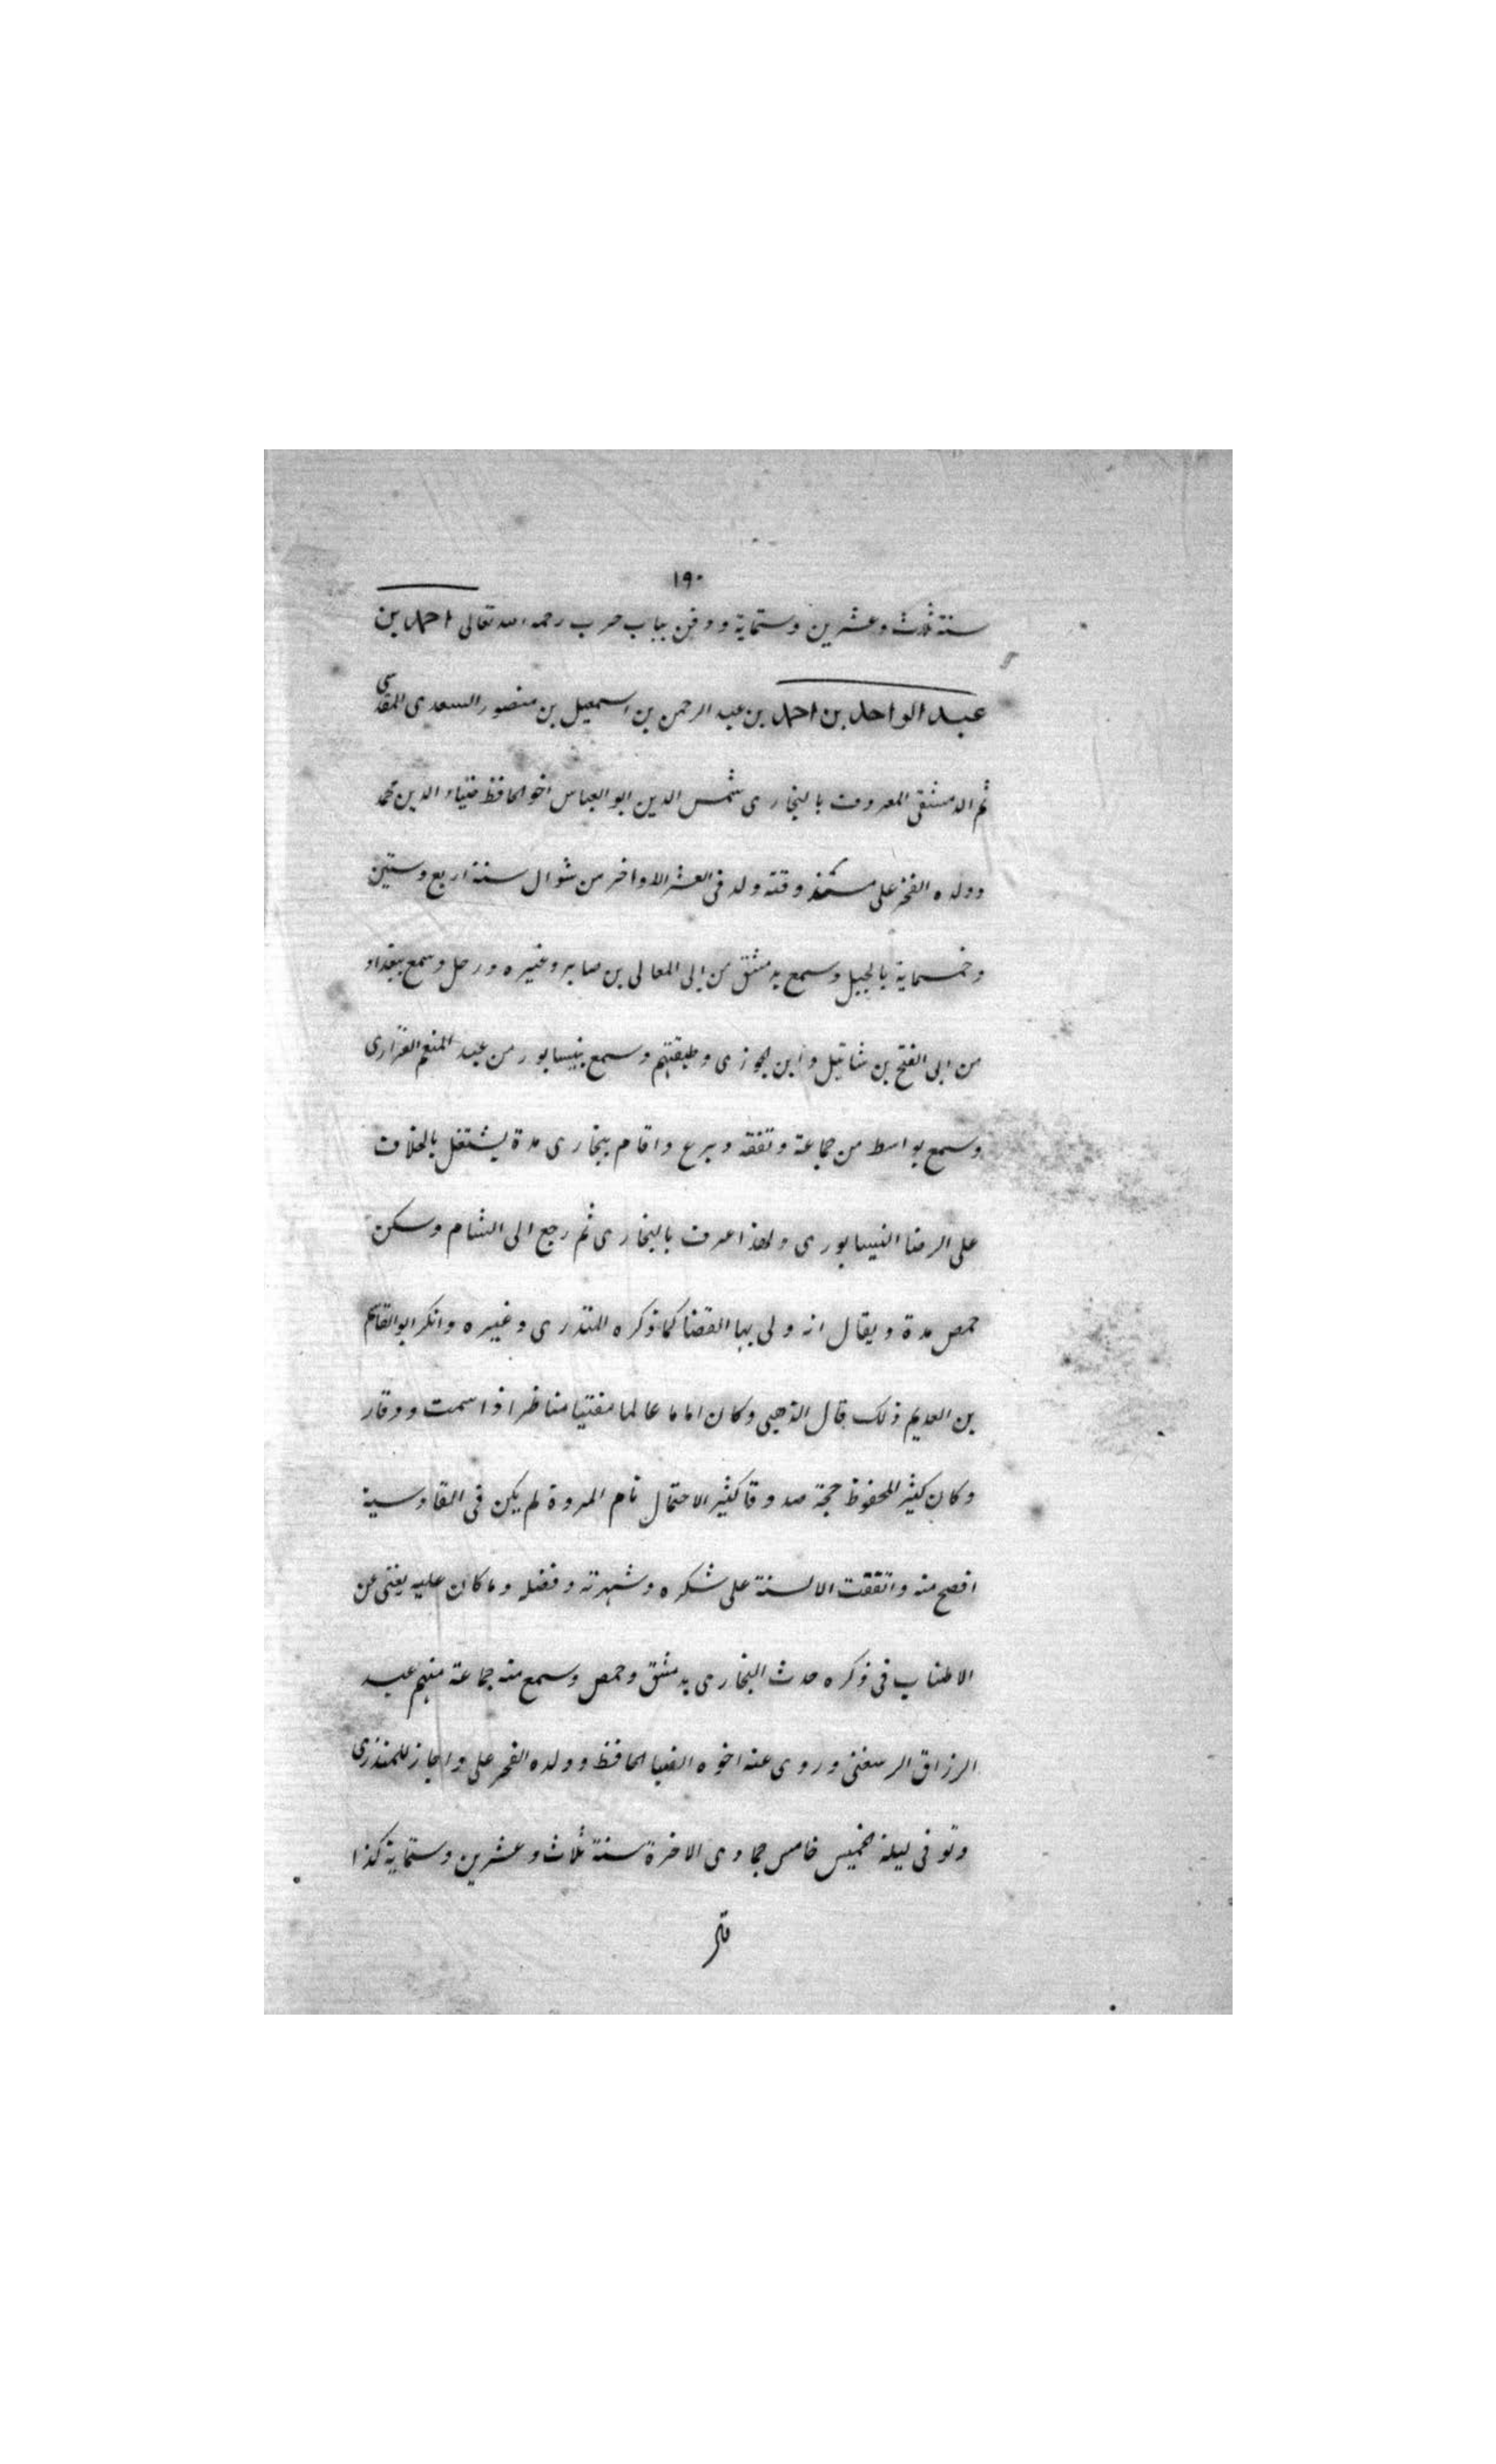 ١٩٠
سنة ثلاث وعشرين وستماية ودفن بباب حرب رحمه الله تعالى احمد بن
عبد الواحد بن احمد بن عبد الرحمن بن اسمعيل بن منصور السعدى المقدسى
ثم الدمشقى المعروف بالبخارى شمس الدين ابو العباس اخو الحافظ ضياء الدين محمد
وولده الفخر على مسند وقته ولد فى العشر الاواخر من شوال سنة اربع وستين
وخمسماية بالجبل وسمع بدمشق من ابى المعالى بن صابر وغيره ورحل وسمع ببغداد
من ابى الفتح بن شاتيل وابن الجوزى وطبقتهم وسمع بنيسابور من عبد المنعم الفزارى
وسمع بواسط من جماعة وتفقه وبرع واقام ببخارى مدة يشتغل بالخلاف
على الرضا النيسابورى ولهذا عرف بالبخارى ثم رجع الى الشام وسكن
حمص مدة ويقال انه ولى بها القضا كما ذكره المنذرى وغيره وانكر ابو القاسم
بن العديم ذلك قال الذهبى وكان اماما عالما مفتيا مناظرا ذا سمت ووقار
وكان كثير المحفوظ حجة صدوقا كثير الاحتمال تام المروة لم يكن فى المقادسية
افصح منه واتفقت الالسنة على شكره وشهرته وفضله وما كان عليه يغنى عن
الاطناب فى ذكره حدث البخارى بدمشق وحمص وسمع منه جماعة منهم عبد
الرزاق الرسعنى وروى عنه اخوه الضيا الحافظ وولده الفخر على واجاز للمنذرى
وتوفى ليلة الخميس خامس جمادى الاخرة سنة ثلاث وعشرين وستماية كذا